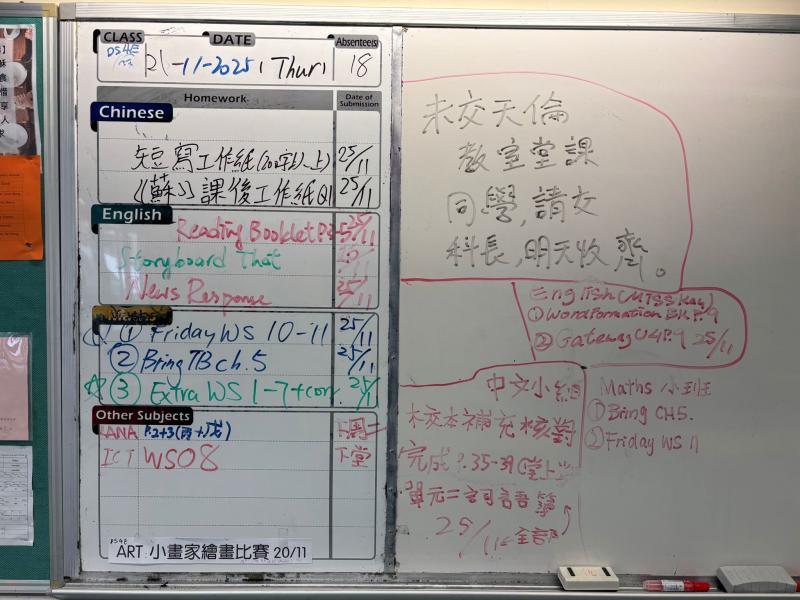 CLASS DATE Absentee(s)
DS4E 21-11-2025, Thur, 18
Homework Date of Submission
Chinese
短寫工作紙(200字以上) 25/11
《蘇》課後工作紙Q1 25/11
English
Reading Booklet P.2-5 25/11
Storyboard That
News Response 25/11
① Friday WS 10-11 25/11
② Bring TB ch.5 25/11
☆③ Extra WS 1-7+corr. 25/11
Other Subjects
P.2+3 下周二
ICT WS08 下堂
DS4E
ART: 小畫家繪畫比賽 20/11
未交天倫
教室堂課
同學,請交
科長,明天收齊。
English (Miss Kay)
① Wordformation BK P.9
② Gateway U4 P.9 25/11
中文小組
未交本補充核對
完成P.35-39(堂上堂
單元二詞語簿
25/11 全部
Maths 小班
① Bring CH5.
② Friday WS 11